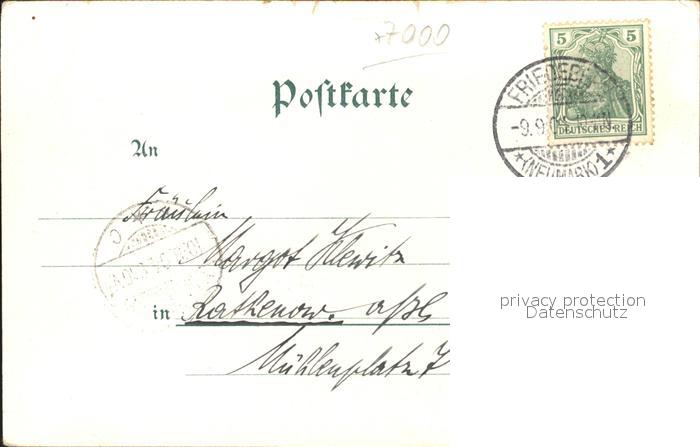 7000
5 5
DEUTSCHES REICH
FRIEDEB
-9.9.0
*(NEUMARK)1*
Postkarte
An
Fräulein
Margot Klewitz
in Rathenow.
Mühlenplatz 7
privacy protection
Datenschutz